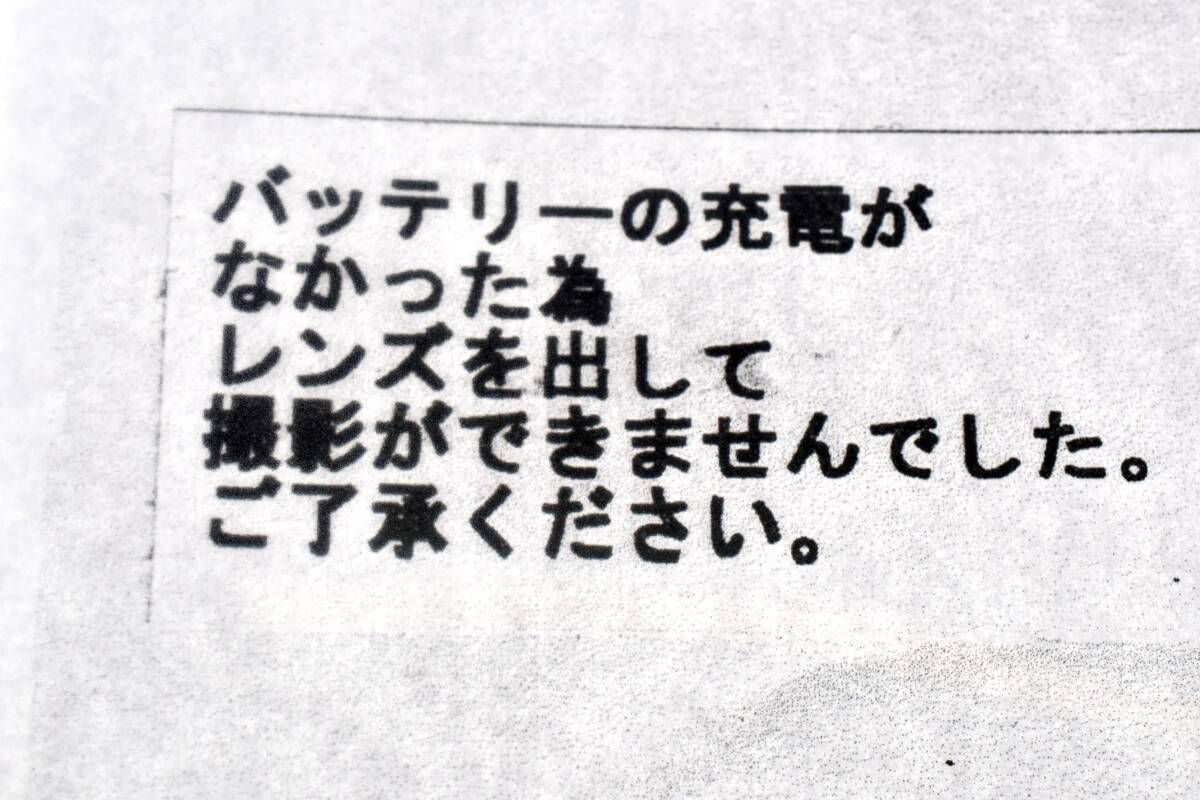 バッテリーの充電が
なかった為
レンズを出して
撮影ができませんでした。
ご了承ください。